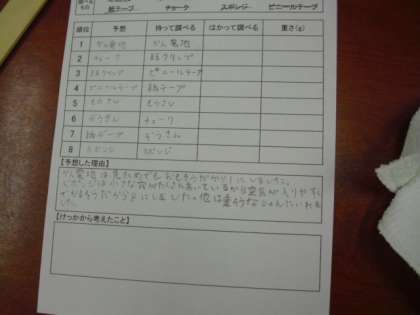 調べるもの
紙テープ チョーク スポンジ ビニールテープ
順位 予想 持って調べる はかって調べる 重さ(g)
1 かん電池 かん電池
2 チョーク
3 ビニールテープ
4 ビニールテープ 紙テープ
5
6 チョーク
7 紙テープ
8 スポンジ スポンジ
【予想した理由】
かん電池は見ためでもおもそうだから1にしました。
スポンジは小さな穴がたくさんあいているから空気が入りやすく
だから8にしました。他は重そうなじゅんにいれま
した。
【けっかから考えたこと】